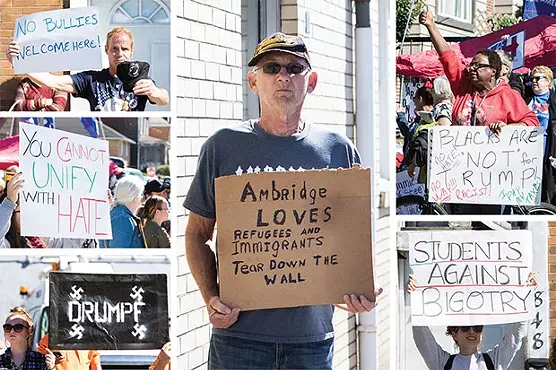 NO BULLIES
WELCOME HERE!
YOU CANNOT
UNIFY
WITH
HATE
DRUMPF
Ambridge
LOVES
REFUGEES AND
IMMIGRANTS
TEAR DOWN THE
WALL
BLACKS ARE
"NOT" for
RUMP
STUDENTS
AGAINST
BIGOTRY
848